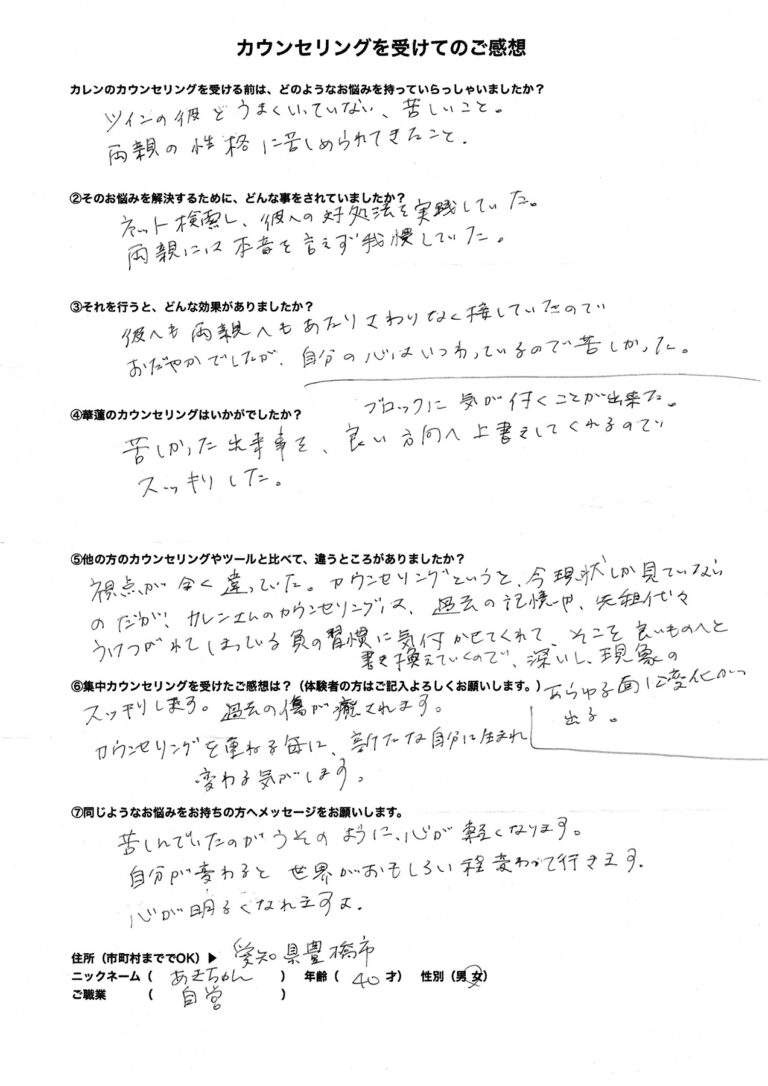 カウンセリングを受けてのご感想
カレンのカウンセリングを受ける前は、どのようなお悩みを持っていらっしゃいましたか？
ツインの彼とうまくいっていない、苦しいこと。
両親の性格に苦しめられてきたこと.
②そのお悩みを解決するために、どんな事をされていましたか？
ネット検索し、彼への対処法を実践していた。
両親には本音を言えず我慢していた。
③それを行うと、どんな効果がありましたか？
彼へも両親へもあたりさわりなく接していたので
おだやかでしたが、自分の心はいつわっているので苦しかった。
④華蓮のカウンセリングはいかがでしたか？
ブロックに気が付くことが出来た。
苦しかった出来事を、良い方向へ上書きしてくれるので
スッキリした。
⑤他の方のカウンセリングやツールと比べて、違うところがありましたか？
視点が全く違っていた。カウンセリングというと、今現状しか見ていないも
のだが、カレンさんのカウンセリングは、過去の記憶や、先祖代々
うけつがれてしまっている負の習慣に気付かせてくれて、そこを良いものへと
書き換えていくので、深いし、現象の
あらゆる面に変化が
出る。
⑥集中カウンセリングを受けたご感想は？（体験者の方はご記入よろしくお願いします。）
スッキリします。過去の傷が癒されます。
カウンセリングを重ねる毎に、新たな自分に生まれ
変わる気がします。
⑦同じようなお悩みをお持ちの方へメッセージをお願いします。
苦しんでいたのがうそのように、心が軽くなります。
自分が変わると世界がおもしろい程変わって行きます.
心が明るくなれますよ.
住所（市町村まででOK）▶ 愛知県豊橋市
ニックネーム（ あきちゃん ） 年齢（ 40 才） 性別（男 女）
ご職業 （ 自営 ）